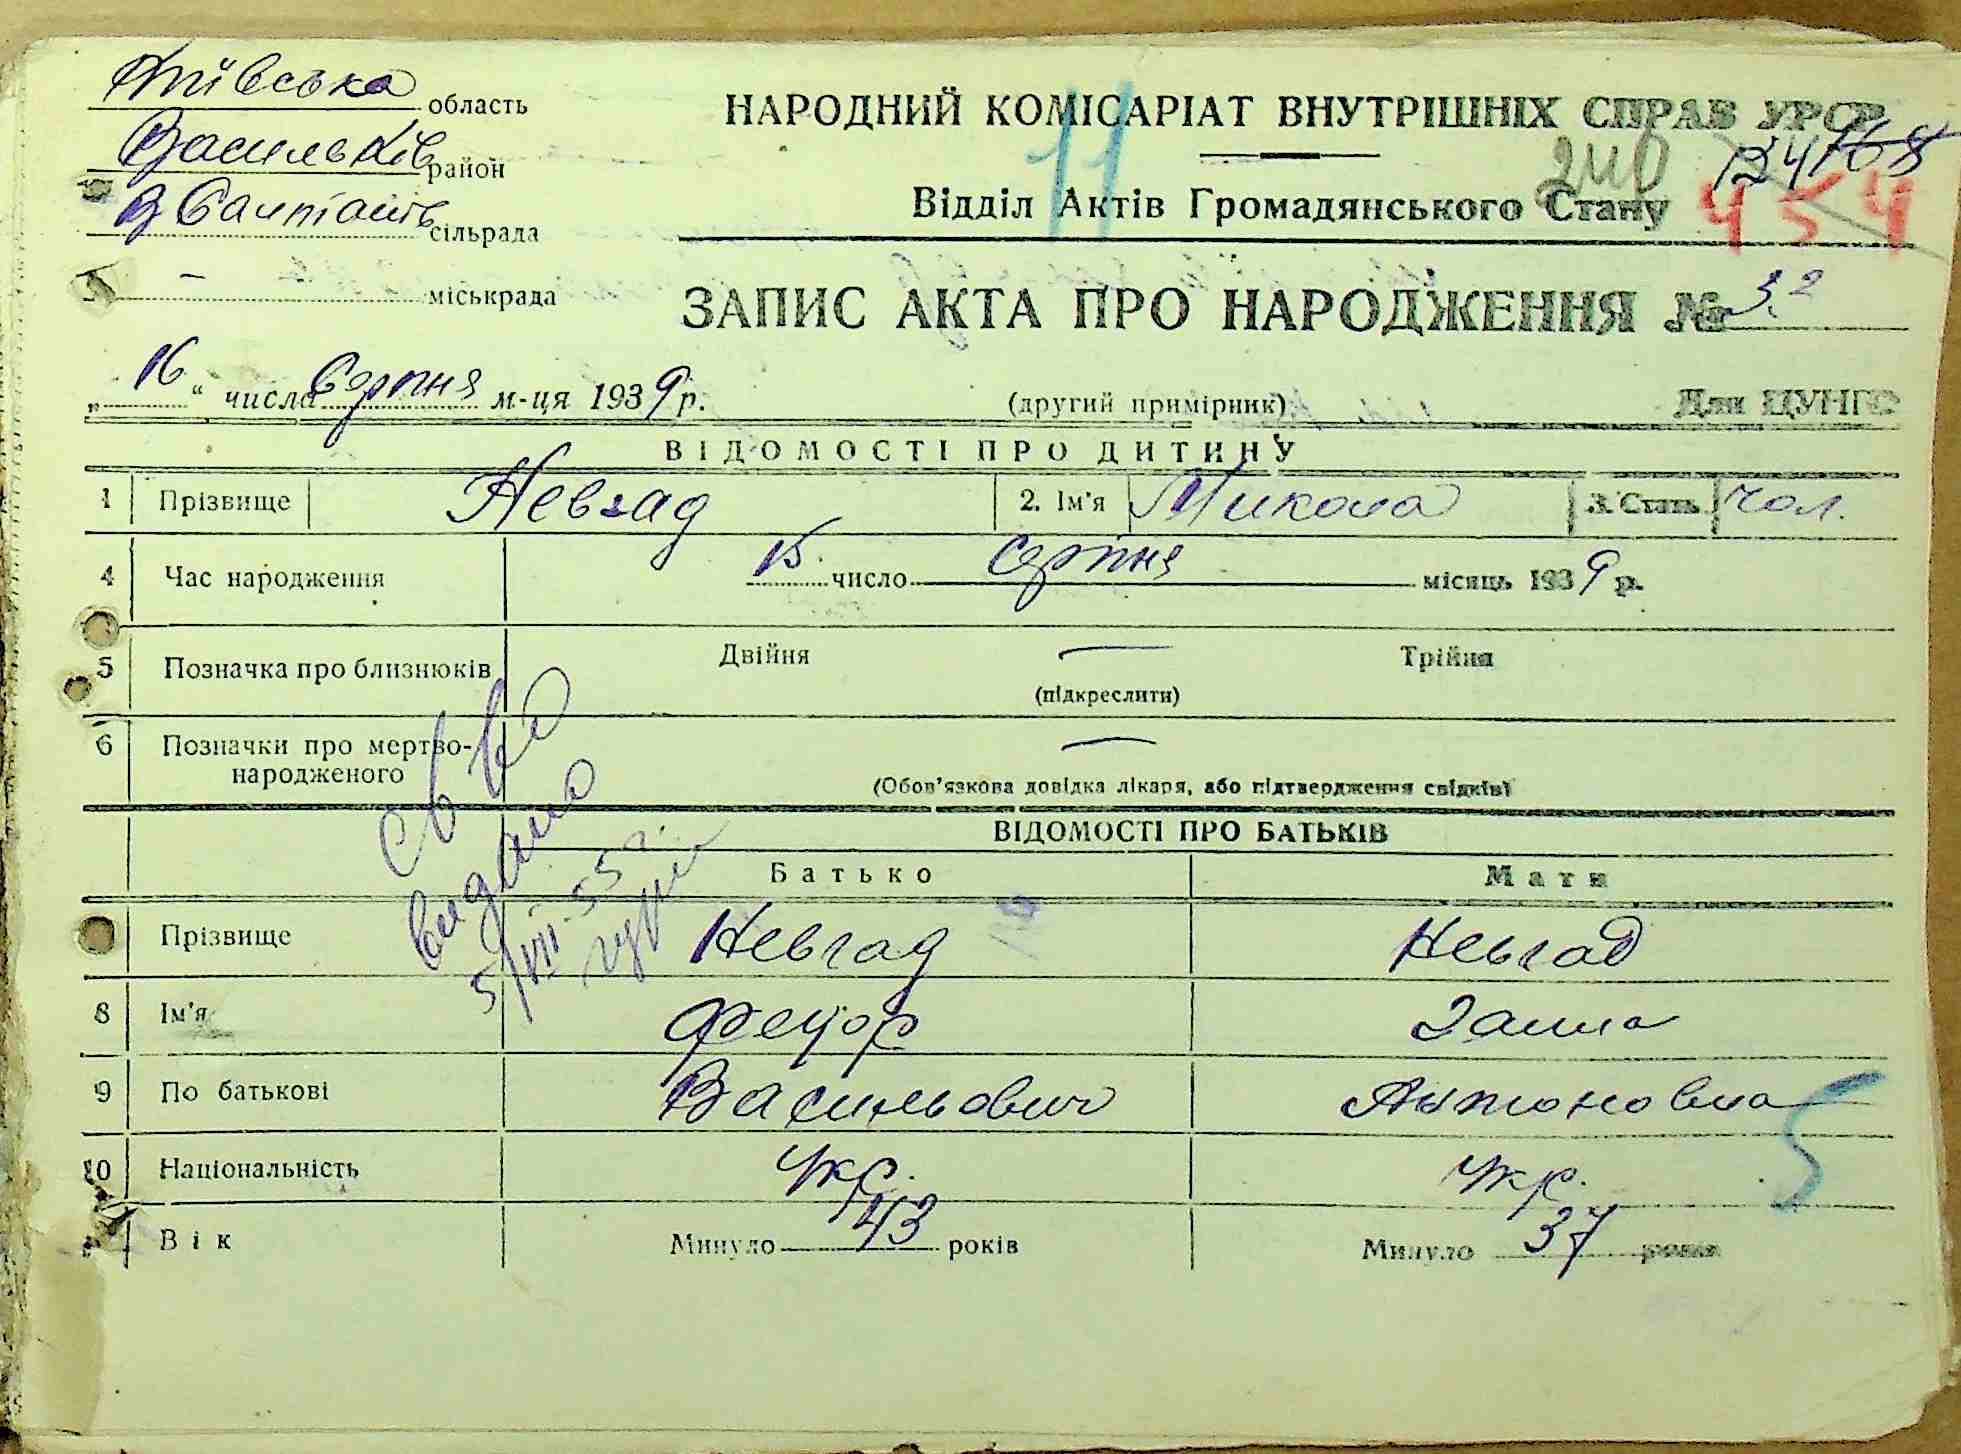 Київська область
Васильків район
В Салтанів сільрада
— міськрада
НАРОДНИЙ КОМІСАРІАТ ВНУТРІШНІХ СПРАВ УРСР
11
240
454
Відділ Актів Громадянського Стану
ЗАПИС АКТА ПРО НАРОДЖЕННЯ № 32
„16“ числа Серпня м-ця 1939 р.
(другий примірник)
Для ЦУНГО
ВІДОМОСТІ ПРО ДИТИНУ
1 Прізвище Невгад 2. Ім'я Микола 3. Стать чол.
4 Час народження 15 число Серпня місяць 1939 р.
5 Позначка про близнюків Двійня — Трійня
(підкреслити)
6 Позначки про мертво-
народженого —
(Обов'язкова довідка лікаря, або підтвердження свідків)
видано
5/VIII-55г.
ВІДОМОСТІ ПРО БАТЬКІВ
Батько Мати
Прізвище Невгад Невгад
8 Ім'я Федор Ганна
9 По батькові Васильович Антоновна
10 Національність Укр. Укр.
Вік Минуло 43 років Минуло 37 років
5